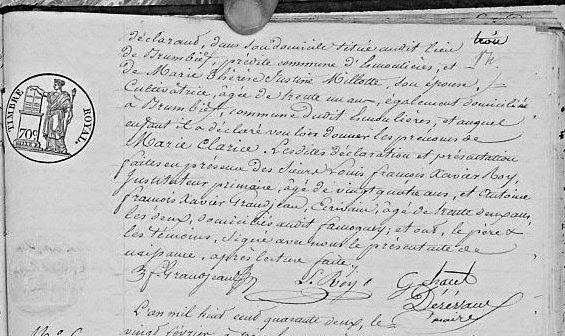 trou
déclarant, dans son domicile situé audit lieu
de Brumbief, prédite commune d'Esmoulières, et
de Marie Thérèse Justine Millotte, son épouse,
Cultivatrice, âgée de trente un ans, également domiciliée
à Brumbief, commune dudit Esmoulières, et auquel
enfant il a déclaré vouloir donner les prénoms de
Marie Clarice. Lesdites déclaration et présentation
faites en présence des sieurs Louis françois Xavier Roy,
Instituteur primaire, âgé de vingt quatre ans, et Antoine
françois Xavier Grandjean, Ecrivain, âgé de trente deux ans,
les deux, domiciliés audit faucogney; et ont, le père &
les témoins, signé avec nous le présent acte de
naissance, après lecture faite.
TIMBRE ROYAL
70c
f Grandjean L. Roy
maire
L'an mil huit cent quarante deux, le
vingt février